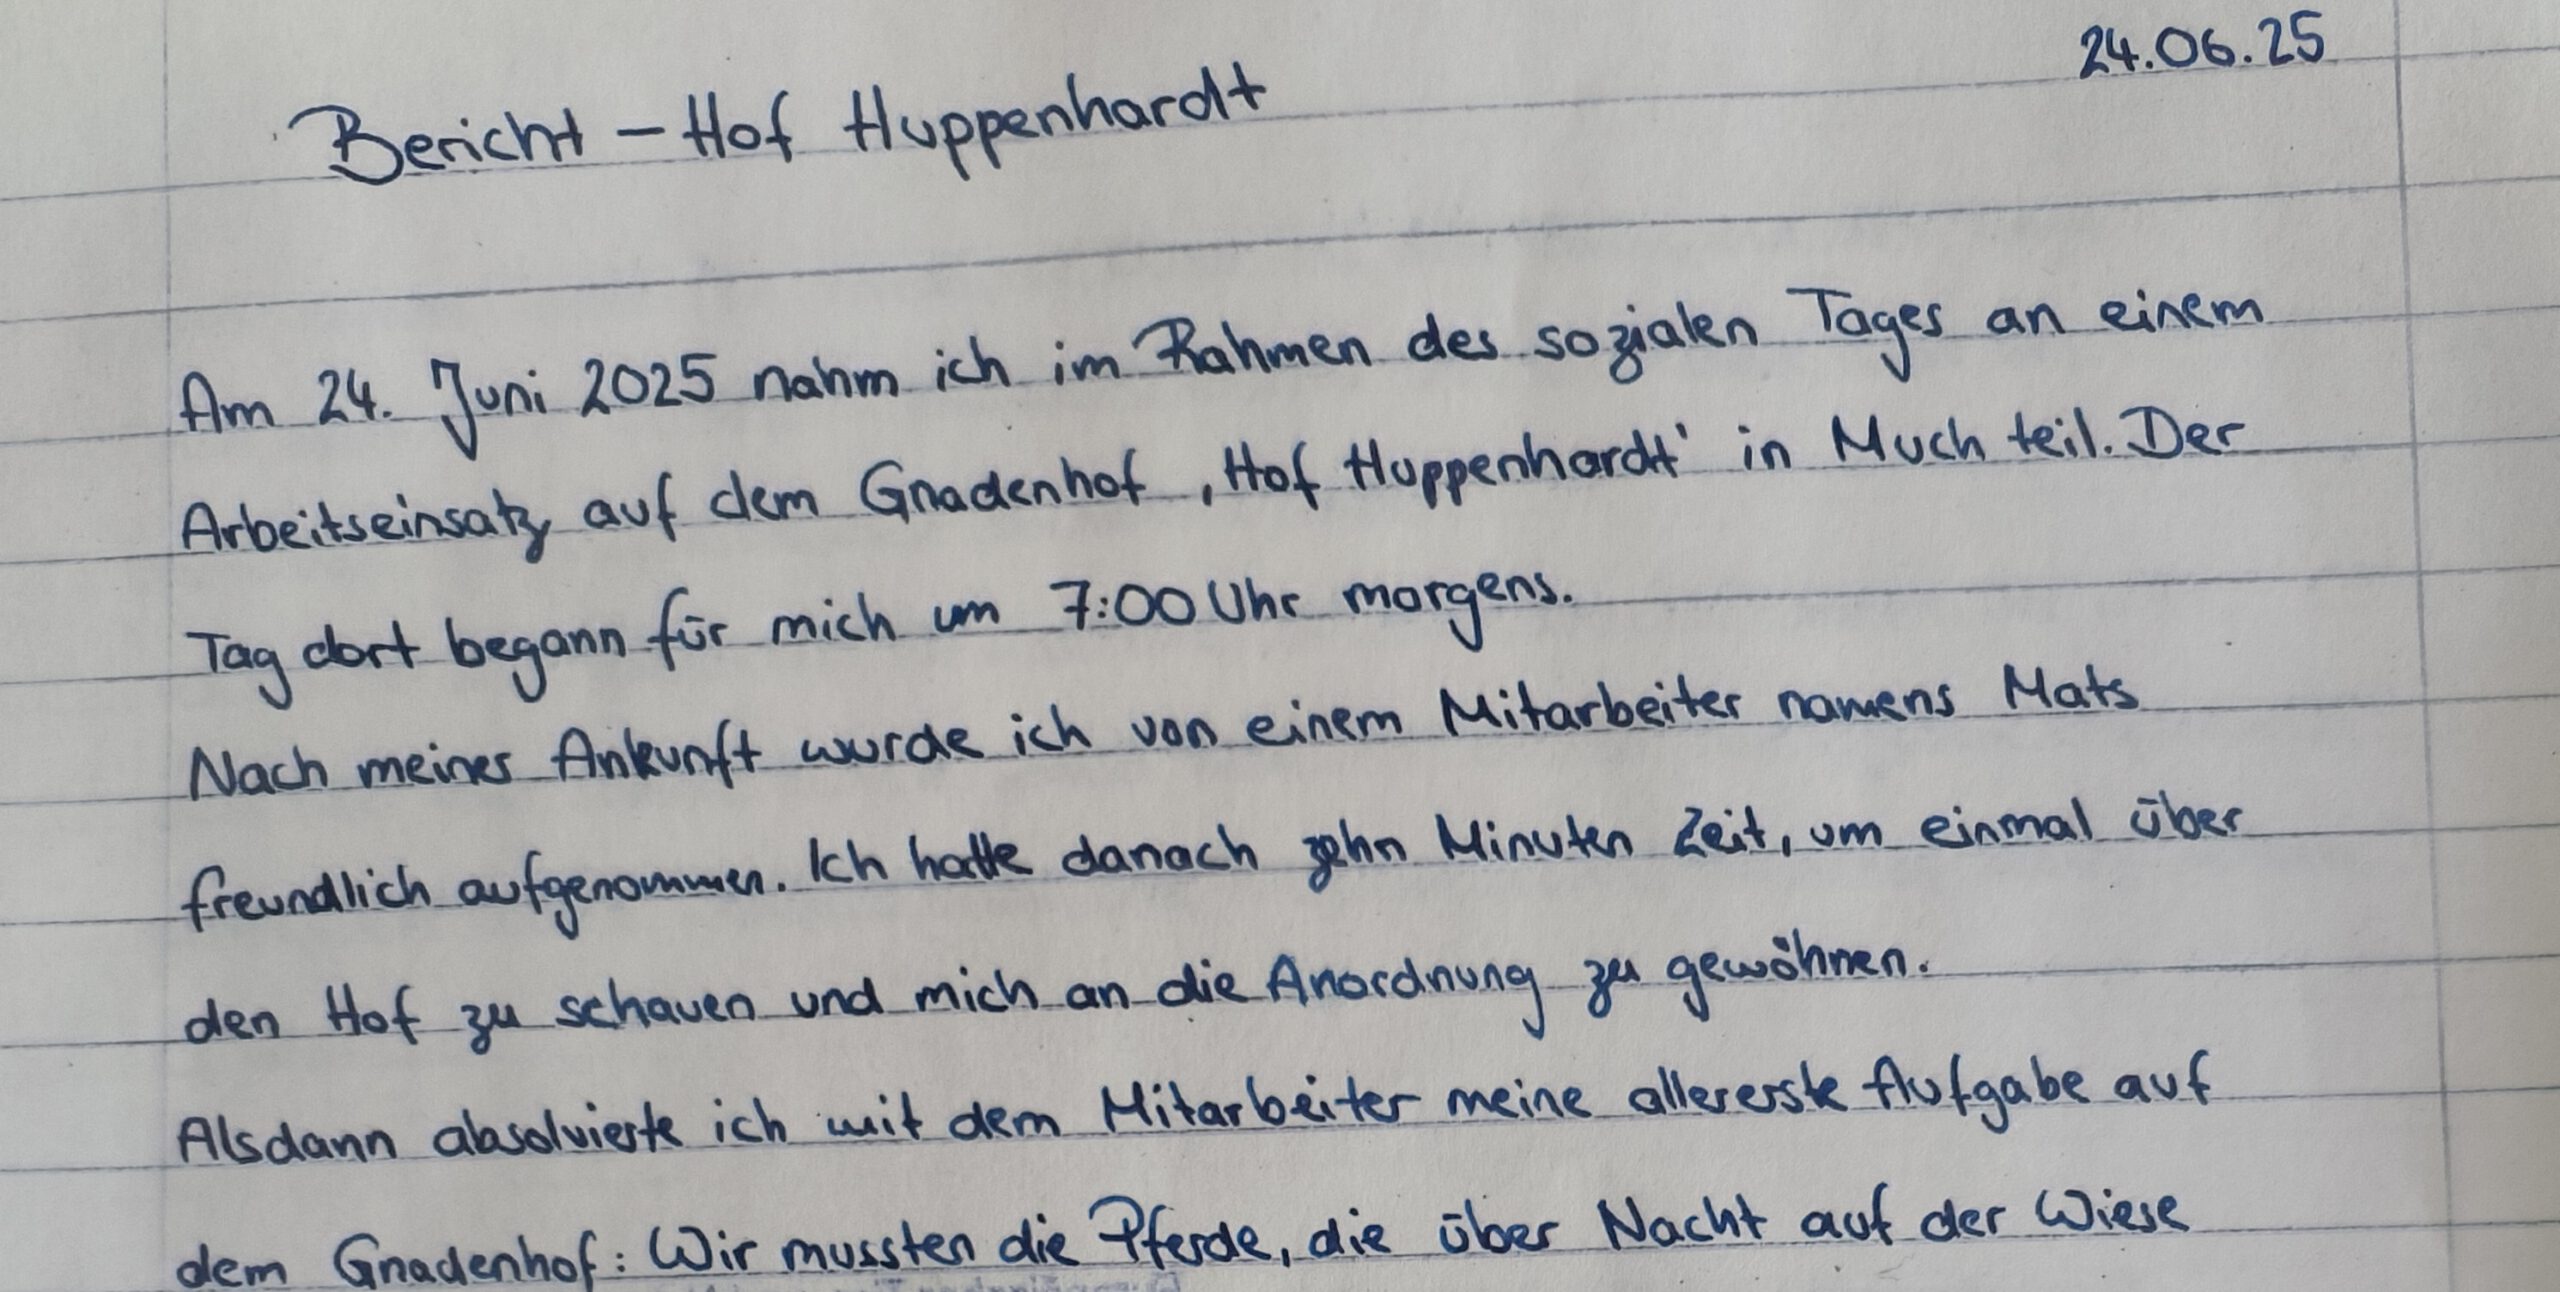 24.06.25
Bericht – Hof Huppenhardt
Am 24. Juni 2025 nahm ich im Rahmen des sozialen Tages an einem
Arbeitseinsatz auf dem Gnadenhof ‚Hof Huppenhardt' in Much teil. Der
Tag dort begann für mich um 7:00 Uhr morgens.
Nach meiner Ankunft wurde ich von einem Mitarbeiter namens Mats
freundlich aufgenommen. Ich hatte danach zehn Minuten Zeit, um einmal über
den Hof zu schauen und mich an die Anordnung zu gewöhnen.
Alsdann absolvierte ich mit dem Mitarbeiter meine allererste Aufgabe auf
dem Gnadenhof: Wir mussten die Pferde, die über Nacht auf der Wiese